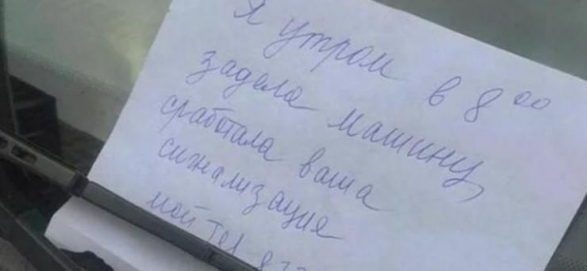 Я утром в 8 00
задела машину,
сработала ваша
сигнализация
мой тел